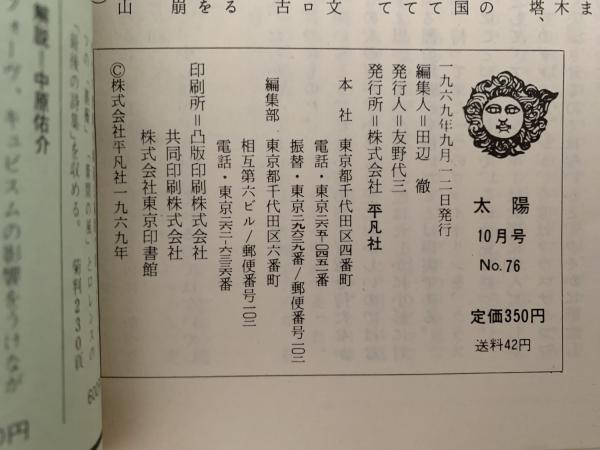 太陽
10月号
No.76
定価350円
送料42円
一九六九年九月一二日発行
編集人＝田辺 徹
発行人＝友野代三
発行所＝株式会社 平凡社
本 社 東京都千代田区四番町
電話・東京二六五-〇四五一番
振替・東京二九六三九番/郵便番号一〇二
編集部 東京都千代田区六番町
相互第六ビル/郵便番号一〇二
電話・東京二六二-六三三六番
印刷所＝凸版印刷株式会社
共同印刷株式会社
株式会社東京印書館
©株式会社平凡社一九六九年
解説＝中原佑介
フォーヴ、キュビスムの影響をうけなが
「最後の詩集」を収める。 菊判230頁